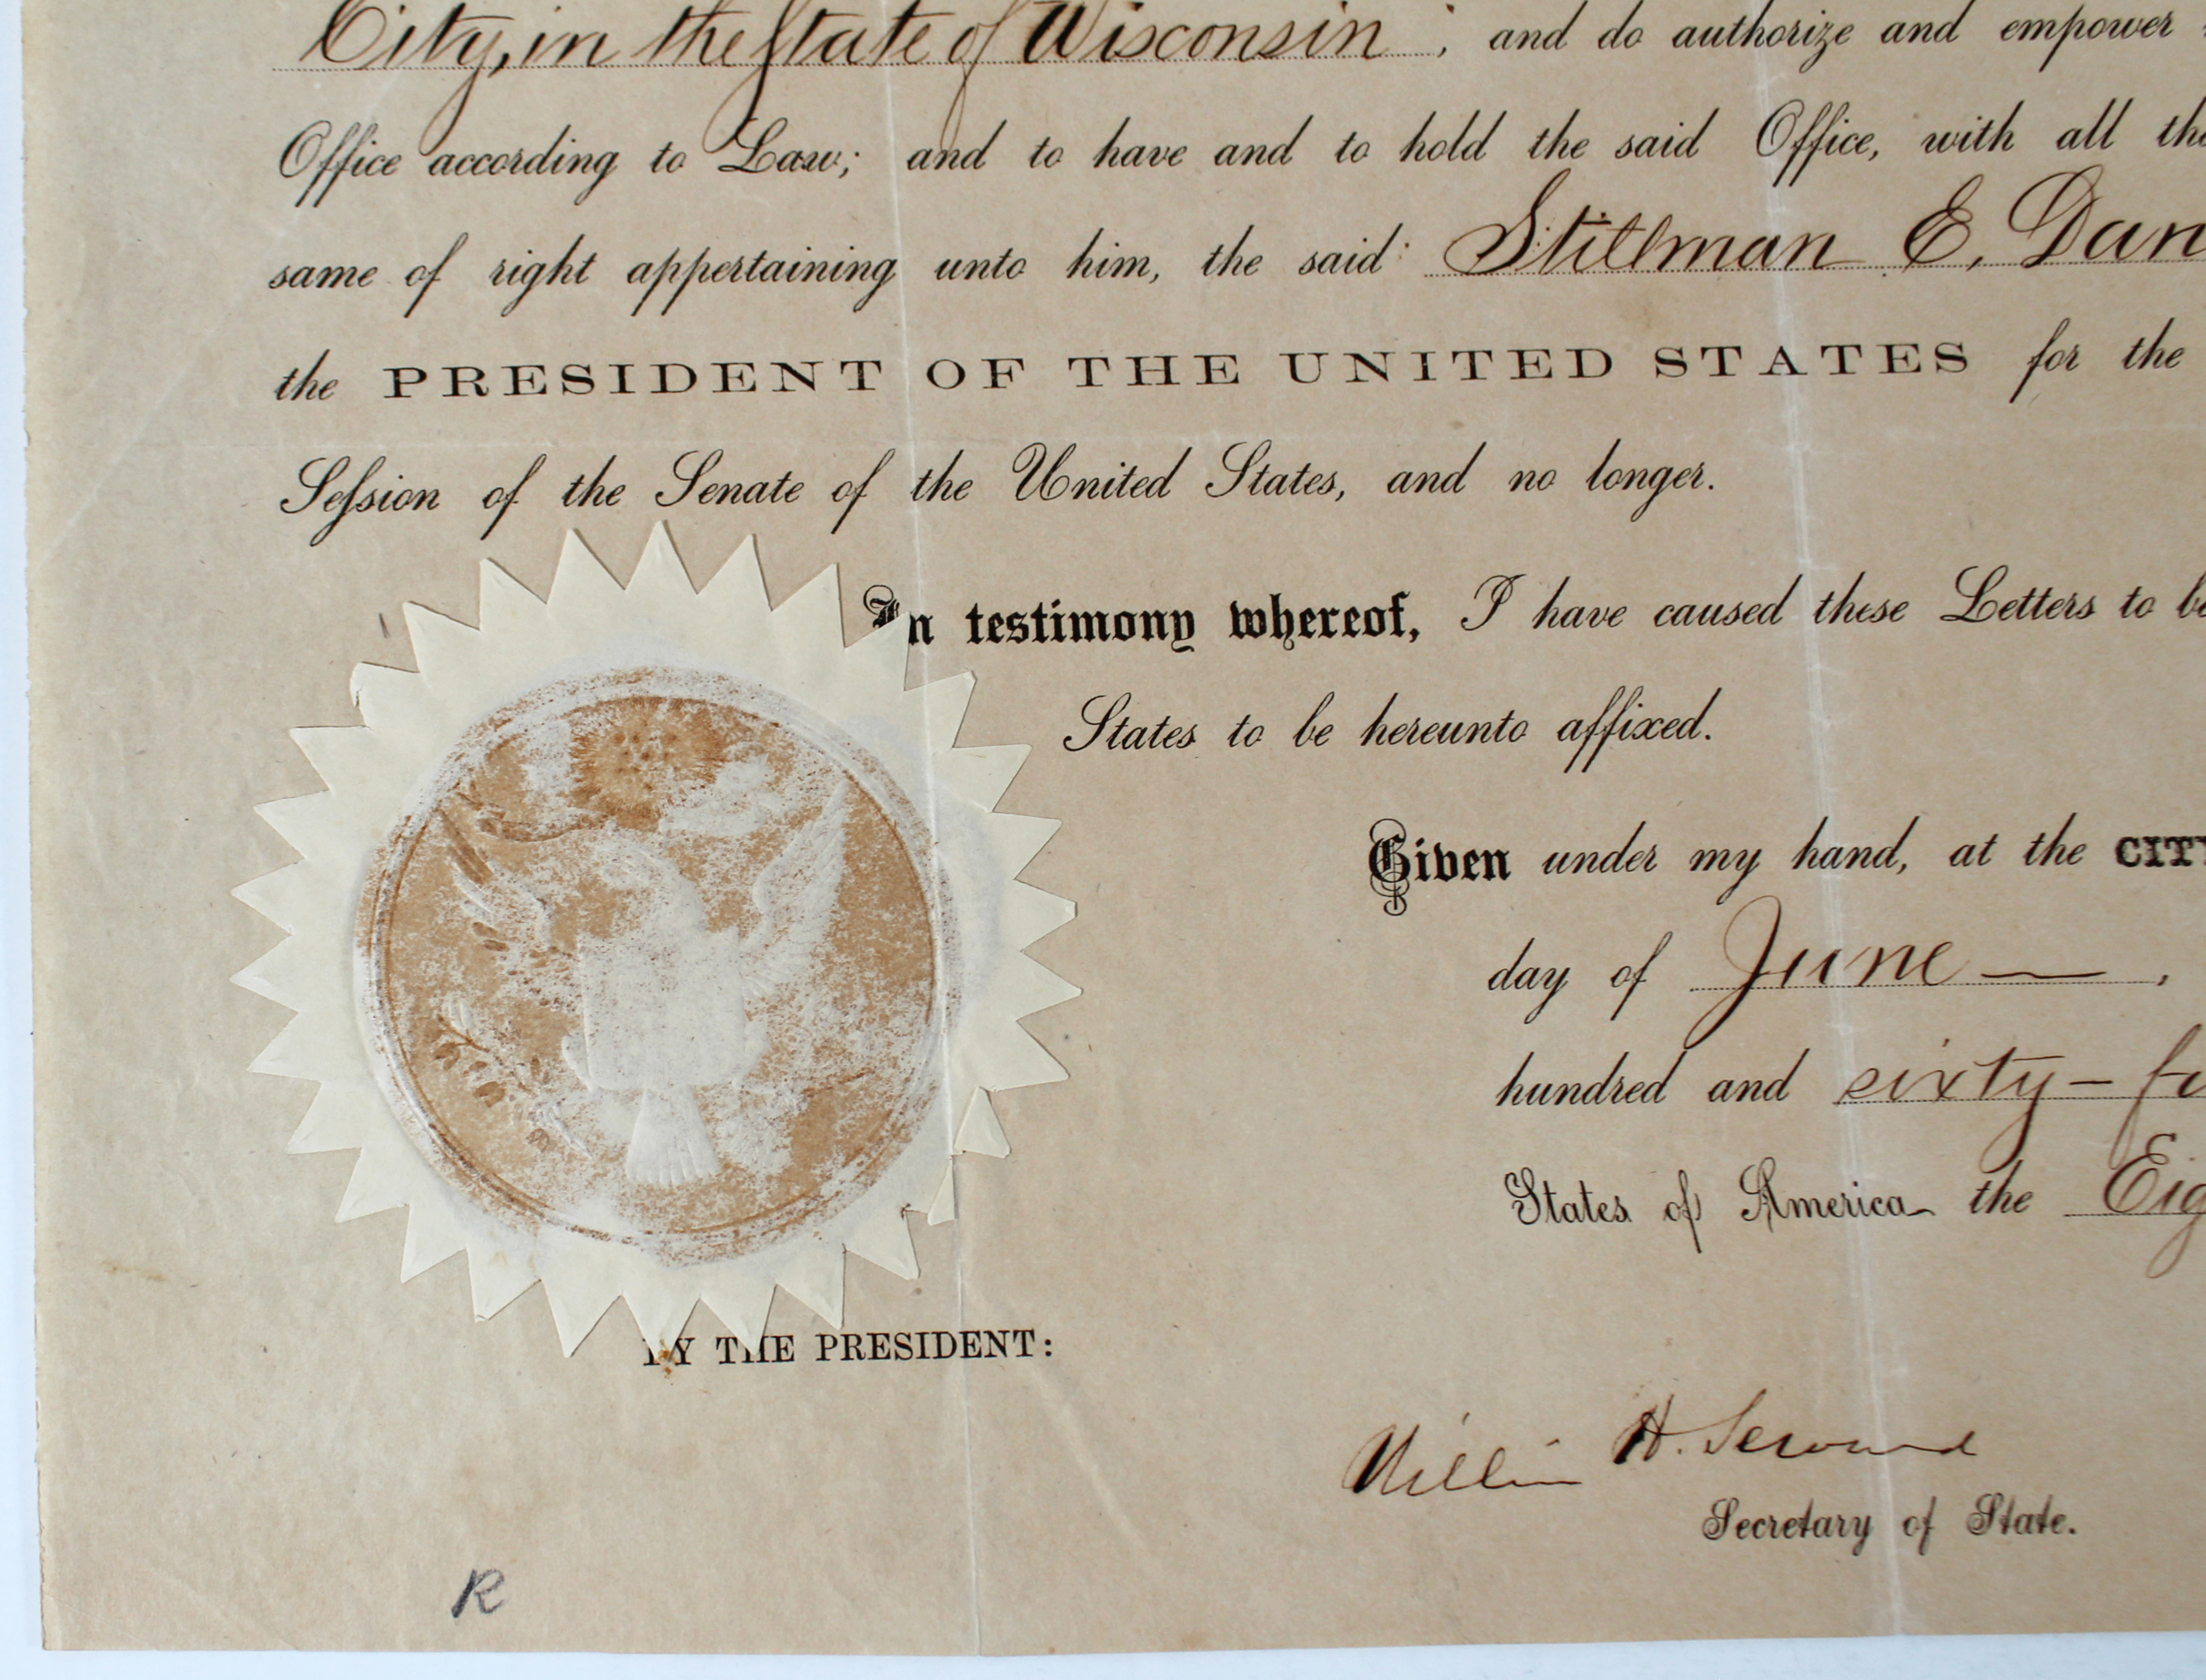 City, in the State of Wisconsin ; and do authorize and empower
Office according to Law; and to have and to hold the said Office, with all the
same of right appertaining unto him, the said Stillman E. Dan
the PRESIDENT OF THE UNITED STATES for the
Seſsion of the Senate of the United States, and no longer.
In testimony whereof, I have caused these Letters to be
States to be hereunto affixed.
Given under my hand, at the CITY
day of June — ,
hundred and sixty-fo
States of America the Eig
BY THE PRESIDENT:
William H. Seward
Secretary of State.
R